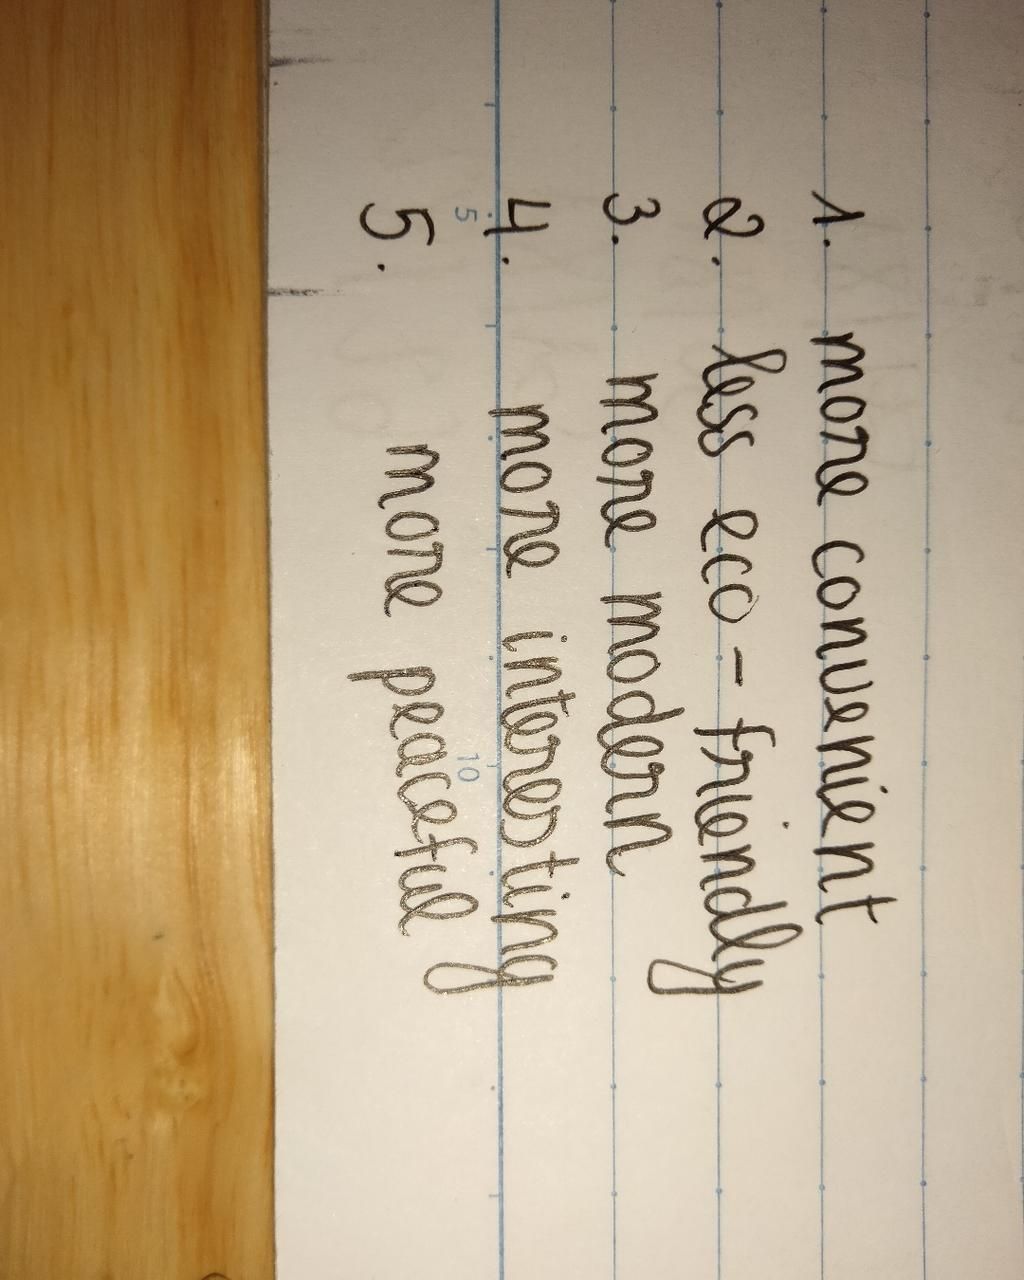 1. more convenient
2. less eco-friendly
3. more modern
4. more interesting
5. more peaceful
5
10